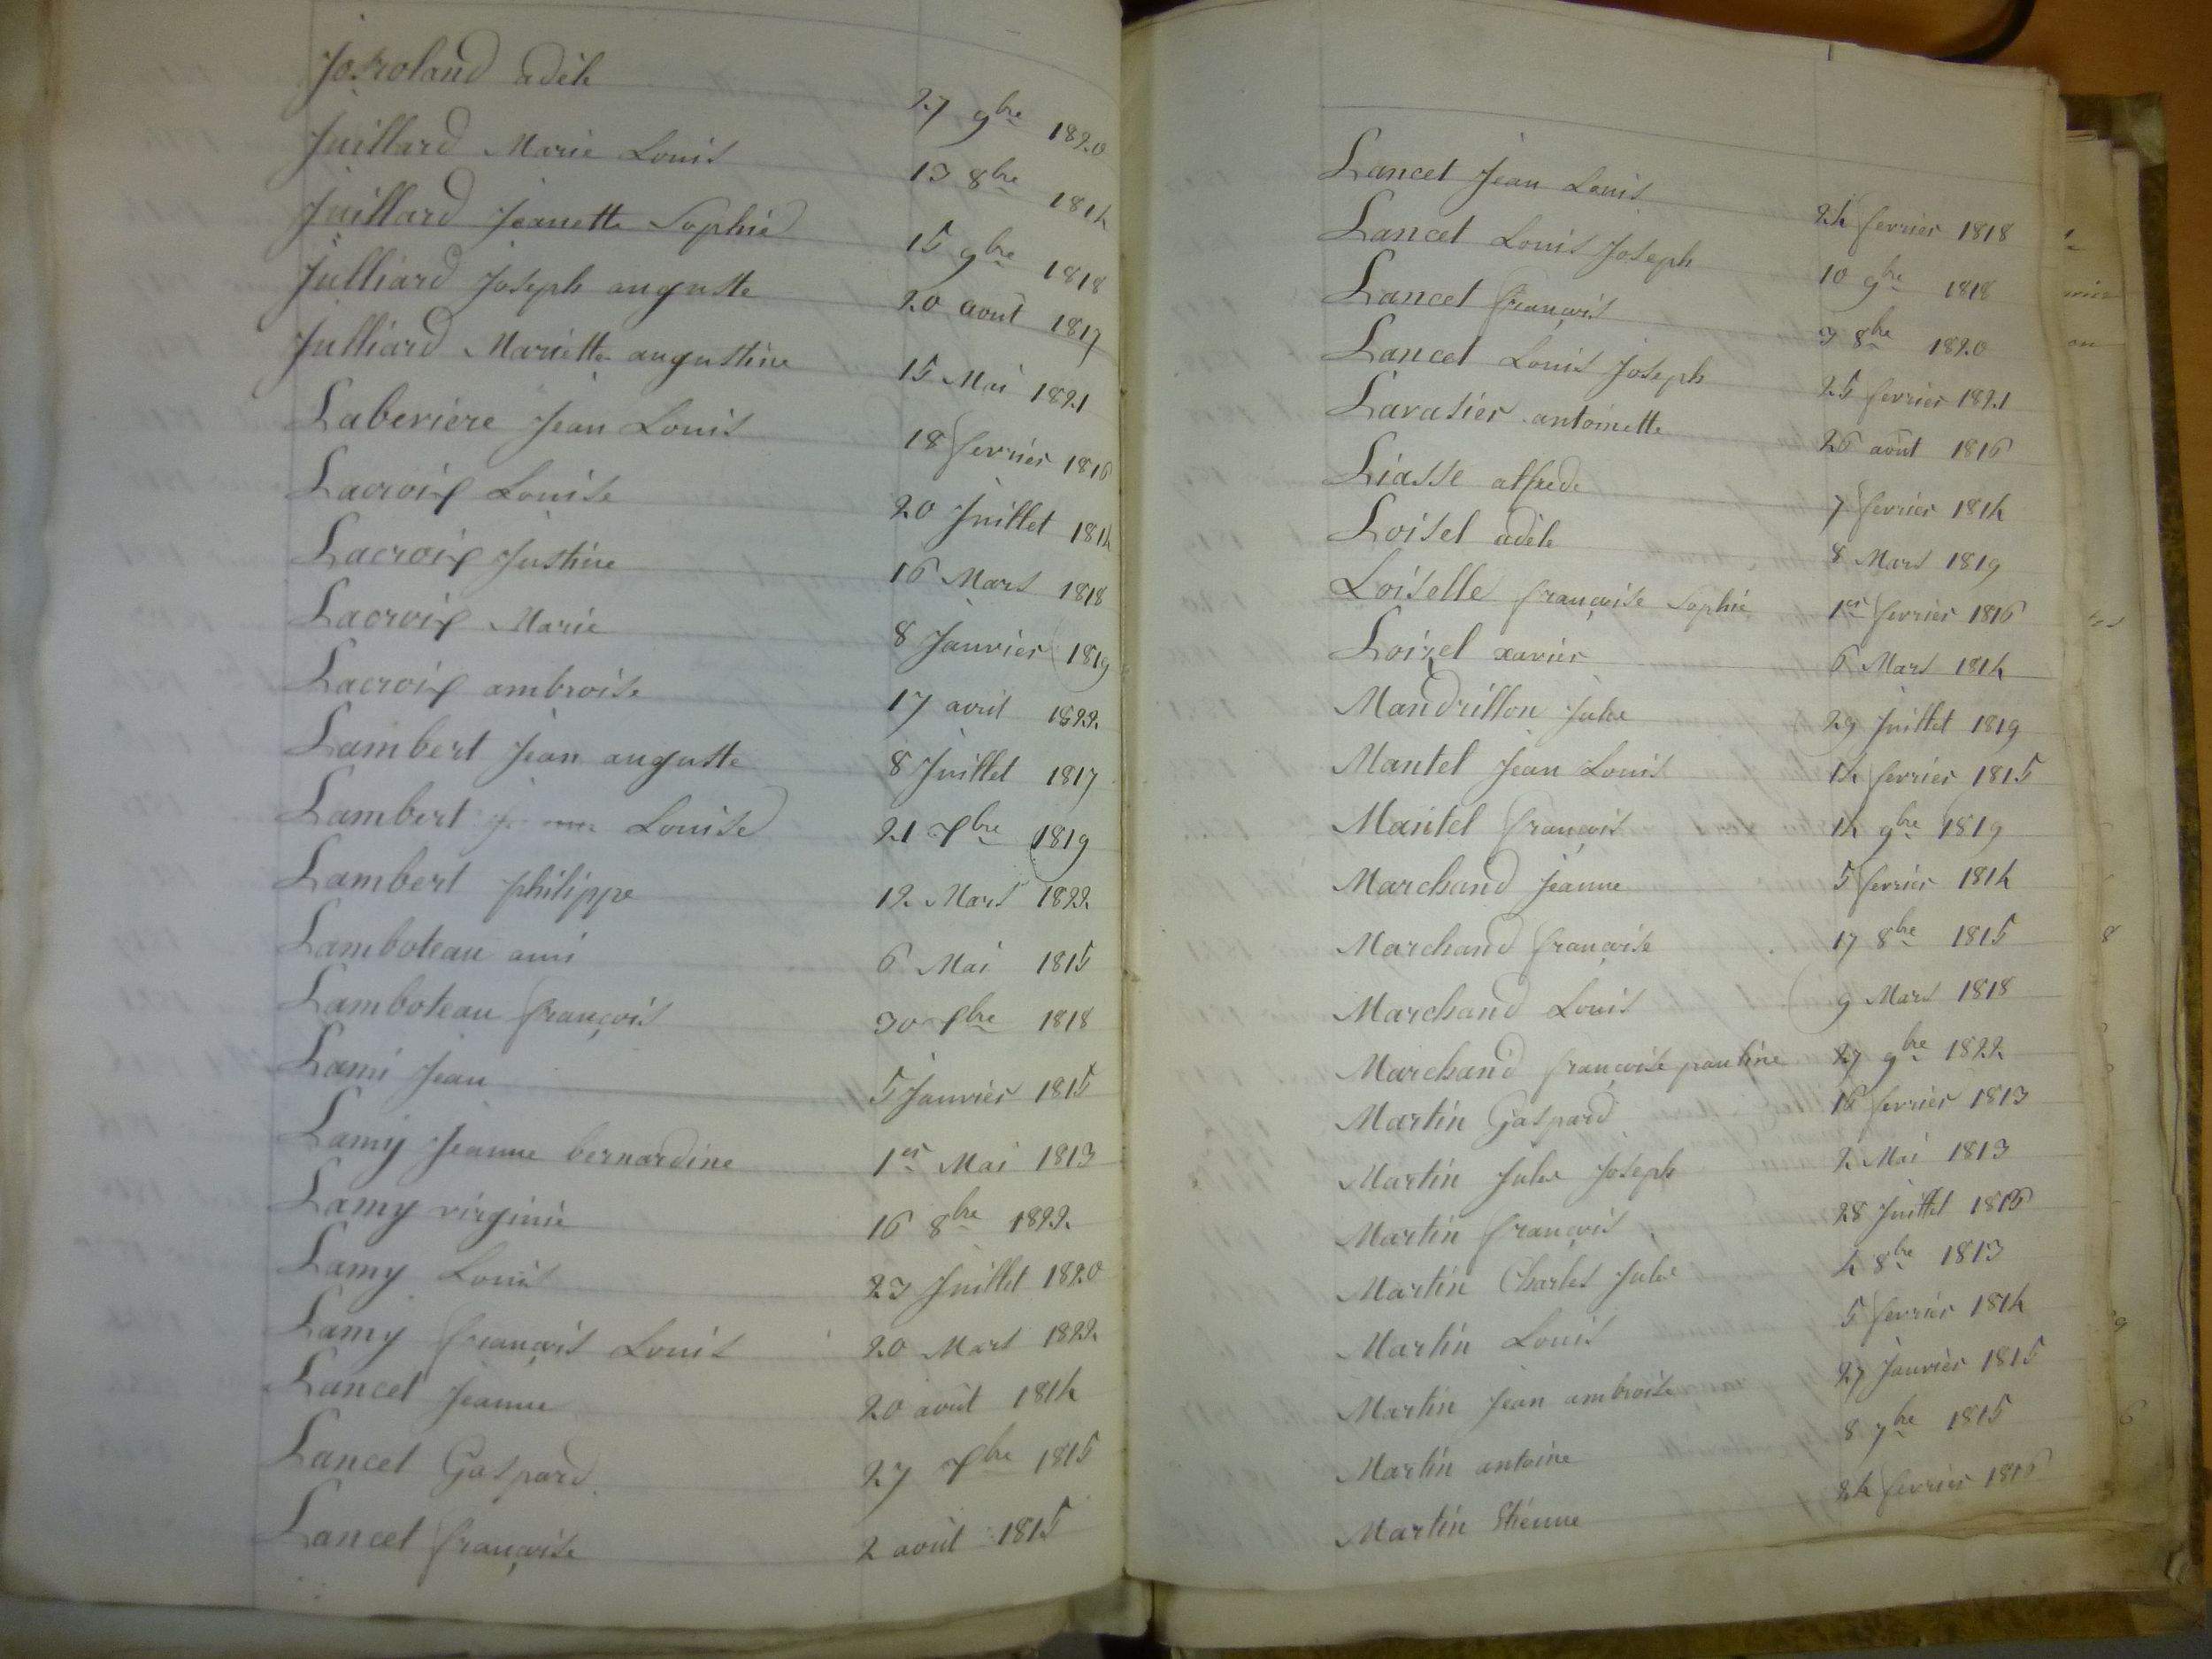 Josroland adèle 27 9bre 1820
Juillard Marie Louis 13 8bre 1814
Juillard Jeanette Sophie 15 9bre 1818
Julliard Joseph auguste 20 aout 1817
Julliard Mariette augustine 15 Mai 1821
Laberiere Jean Louis 18 fevrier 1816
Lacroix Louise 20 Juillet 1814
Lacroix Justine 16 Mars 1818
Lacroix Marie 8 Janvier 1819
Lacroix ambroise 17 avril 1822
Lambert Jean auguste 8 Juillet 1817
Lambert Louise 21 7bre 1819
Lambert philippe 12 Mars 1822
Lamboteau ami 6 Mai 1815
Lamboteau françois 30 7bre 1818
Lami Jean 5 Janvier 1815
Lamy Jeanne bernardine 1er Mai 1813
Lamy virginie 16 8bre 1822
Lamy Louis 23 Juillet 1820
Lamy françois Louis 20 Mars 1822
Lancet Jeanne 20 août 1814
Lancet Gaspard 27 7bre 1815
Lancet françoise 2 août 1815
Lancet Jean Louis 24 fevrier 1818
Lancet Louis Joseph 10 9bre 1818
Lancet françois 3 8bre 1820
Lancet Louis Joseph 25 fevrier 1821
Lavasier antoinette 26 août 1816
Liasse alfrede 7 fevrier 1814
Loisel adèle 8 Mars 1819
Loiselle françoise Sophie 1er fevrier 1816
Loizel xavier 6 Mars 1814
Mandrillon Jules 29 Juillet 1819
Mantel Jean Louis 14 fevrier 1815
Mantel françois 14 9bre 1819
Marchand Jeanne 5 fevrier 1814
Marchand françoise 17 8bre 1815
Marchand Louis 9 Mars 1818
Marchand françoise pauline 27 9bre 1822
Martin Gaspard 16 fevrier 1813
Martin Jules Joseph 2 Mai 1813
Martin françois 28 Juillet 1813
Martin Charles Jules 4 8bre 1813
Martin Louis 5 fevrier 1814
Martin Jean ambroise 27 Janvier 1815
Martin antoine 8 7bre 1815
Martin Etienne 24 fevrier 1816